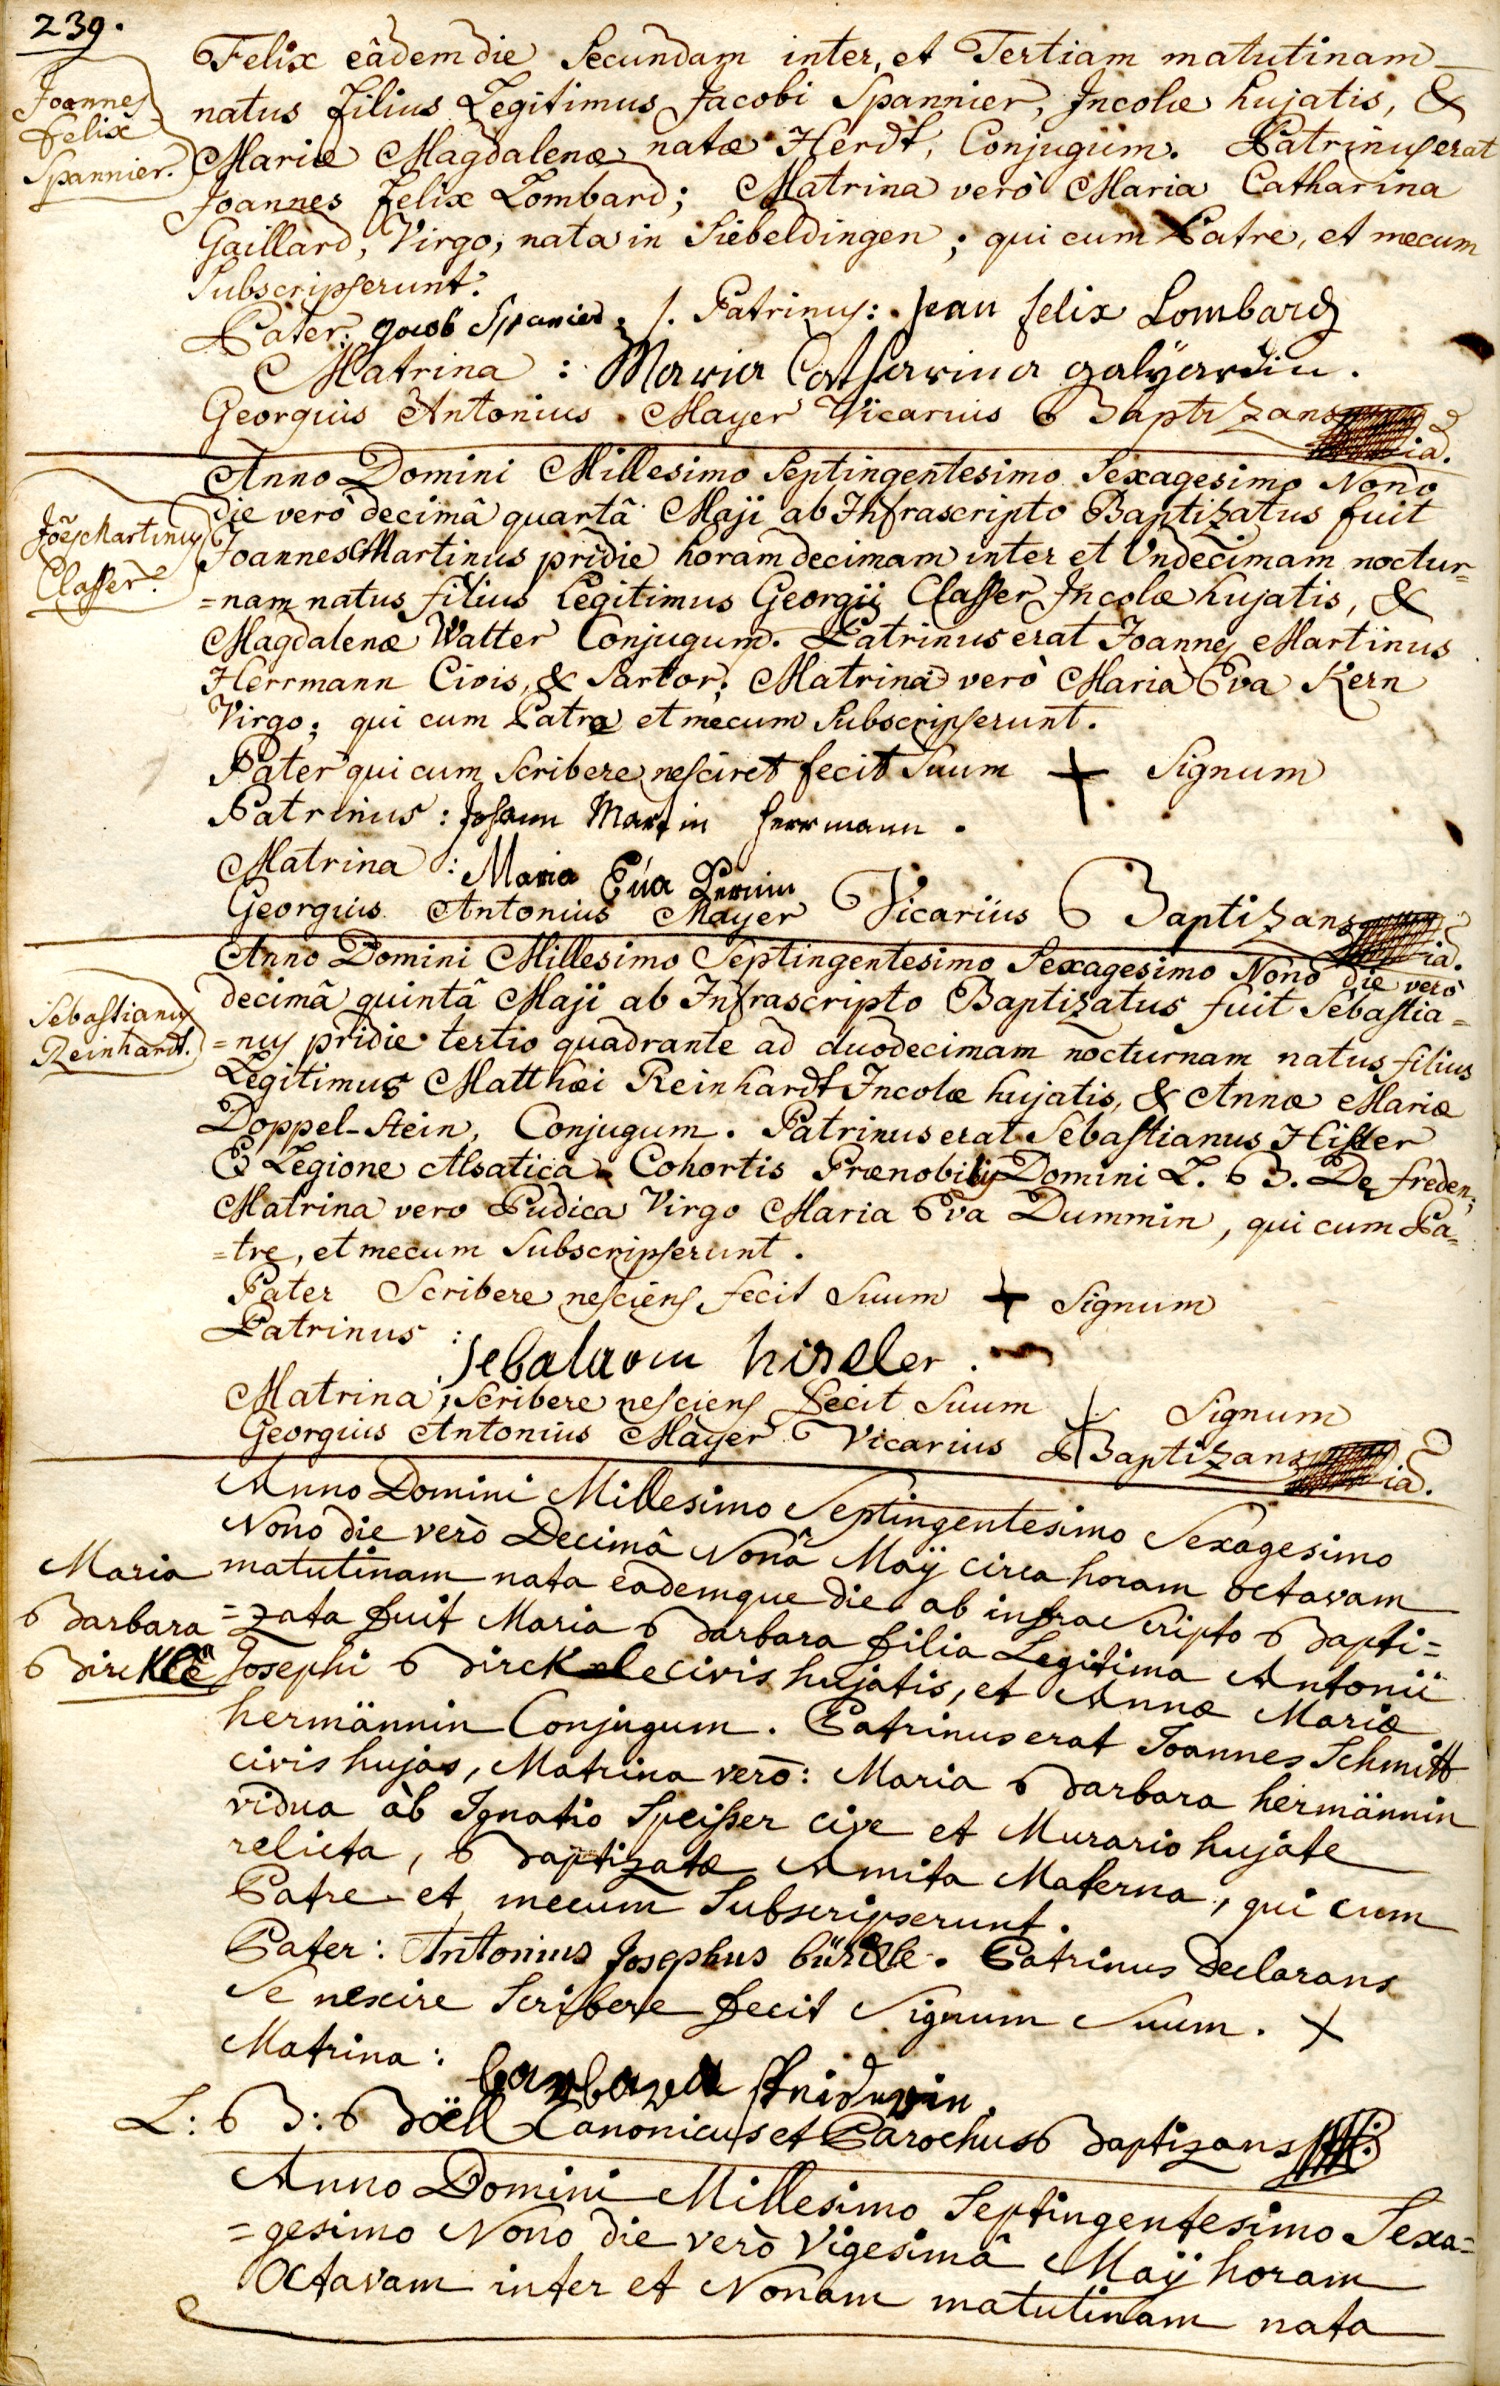 239.
Joannes
Felix
Spannier.
Felix eâdem die Secundam inter, et Tertiam matutinam
natus filius Legitimus Jacobi Spannier, Incolæ hujatis, &
Mariæ Magdalenæ natæ Herdt, Conjugum. Patrinus erat
Joannes Felix Lombard; Matrina verò Maria Catharina
Gaillard, Virgo, nata in Siebeldingen; qui cum Patre, et mecum
Subscripserunt.
Pater: Jacob Spanier. Patrinus: Jean felix Lombard
Matrina: Maria Catharina galÿardin.
Georgius Antonius Mayer Vicarius Baptizans
Joēs Martinus
Classer.
Anno Domini Millesimo Septingentesimo Sexagesimo Nono
die verò decimâ quartâ Maji ab Infrascripto Baptizatus fuit
Joannes Martinus pridie horam decimam inter et Undecimam noctur=
=nam natus filius Legitimus Georgii Classer Incolæ hujatis, &
Magdalenæ Watter Conjugum. Patrinus erat Joannes Martinus
Herrmann Civis, & Sartor; Matrina verò Maria Eva Kern
Virgo; qui cum Patre et mecum Subscripserunt.
Pater qui cum Scribere nesciret fecit Suum + Signum
Patrinus: Johann Martin Herrmann.
Matrina: Maria Eva Kernin
Georgius Antonius Mayer Vicarius Baptizans
Sebastianus
Reinhardt.
Anno Domini Millesimo Septingentesimo Sexagesimo Nono die verò
decimâ quintâ Maji ab Infrascripto Baptizatus fuit Sebastia=
=nus pridie tertio quadrante ad duodecimam nocturnam natus filius
Legitimus Matthæi Reinhardt Incolæ hujatis, & Annæ Mariæ
Doppel-Stein, Conjugum. Patrinus erat Sebastianus Hisler
E Legione Alsatica Cohortis Prænobilis Domini L. B. De Freden;
Matrina vero Pudica Virgo Maria Eva Dummin, qui cum Pa=
=tre, et mecum Subscripserunt.
Pater Scribere nesciens fecit Suum + Signum
Patrinus: hiseler.
Matrina; Scribere nesciens fecit Suum + Signum
Georgius Antonius Mayer Vicarius Baptizans
Maria
Barbara
Birckle
Anno Domini Millesimo Septingentesimo Sexagesimo
Nono die verò Decimâ Nonâ Maÿ circa horam octavam
matutinam nata eademque die ab infra Scripto Bapti=
=zata fuit Maria Barbara filia Legitima Antonii
Josephi Birckle civis hujatis, et Annæ Mariæ
hermännin Conjugum. Patrinus erat Joannes Schmitt
civis hujas, Matrina verò: Maria Barbara hermännin
vidua ab Ignatio Speisser cive et Murario hujate
relicta, Baptizatæ Amita Materna, qui cum
Patre et mecum Subscripserunt.
Pater: Antonius Josephus bürckle. Patrinus declarans
Se nescire Scribere fecit Signum Suum. +
Matrina: barbara
L: B: Böell Canonicus et Parochus Baptizans
Anno Domini Millesimo Septingentesimo Sexa=
=gesimo Nono die verò Vigesimâ Maÿ horam
Octavam inter et Nonam matutinam nata